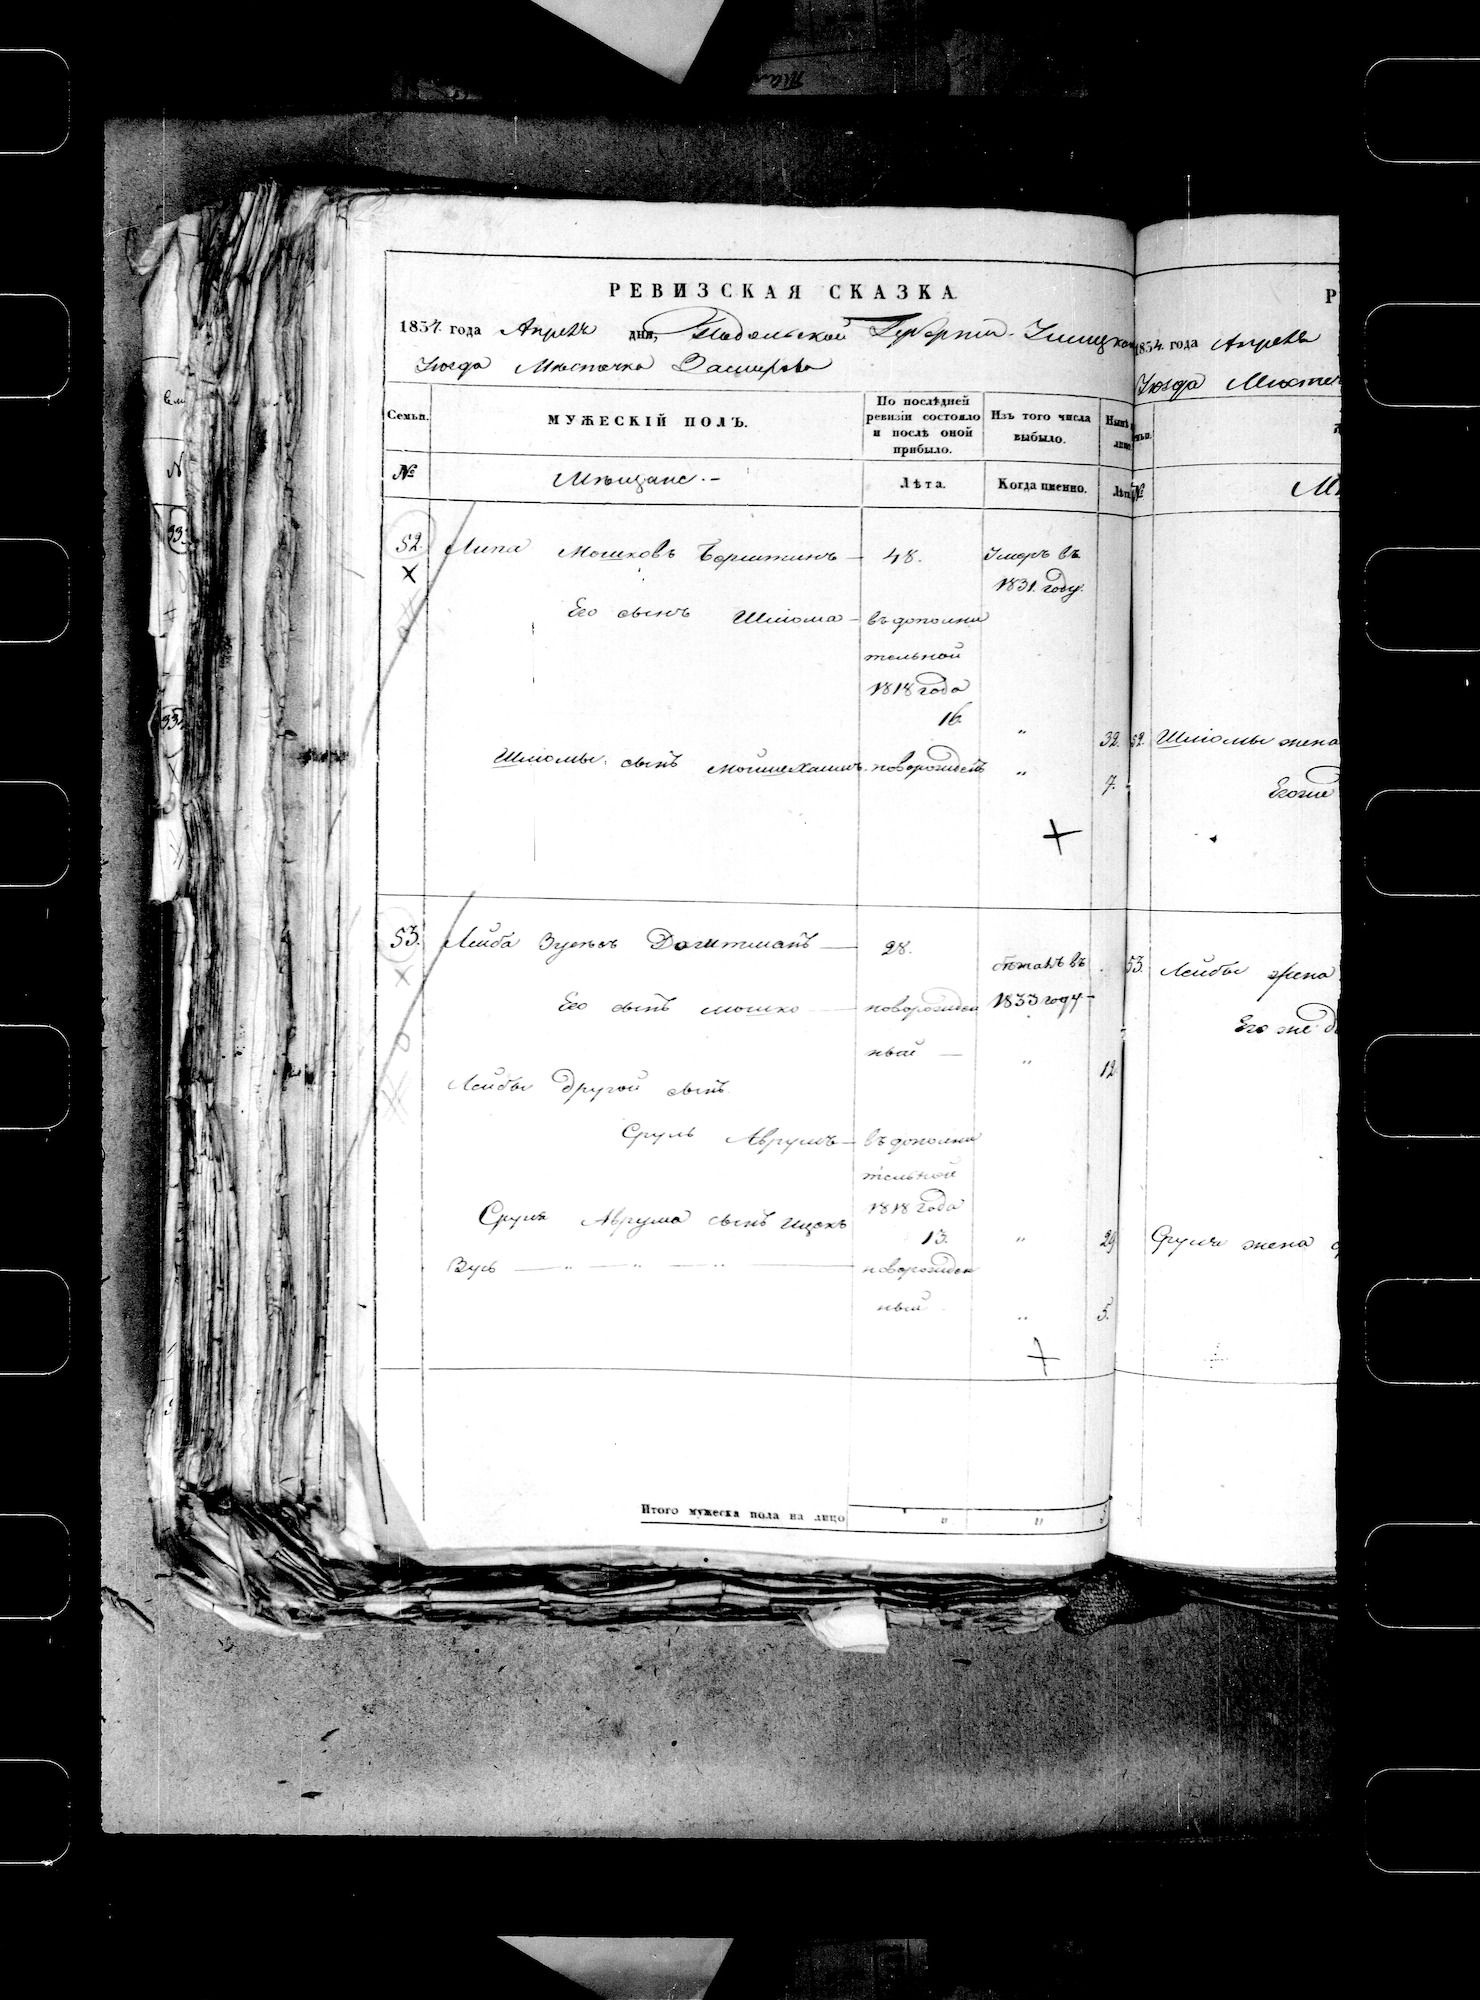 РЕВИЗСКАЯ СКАЗКА
1834. года Апреля дня, Подольской Губерніи Ушицкаго
Уезда Мѣстечка
Семьи.
МУЖЕСКІЙ ПОЛЪ.
По послѣдней
ревизіи состояло
и послѣ оной
прибыло.
Изъ того числа
выбыло.
Нынѣ
лицо
№
Мѣщане. -
Лѣта.
Когда именно.
Лѣта
52. Липа Мошковъ 48. Умеръ въ
1831. году.
Его сынъ Шлiома въ дополни
тельной
1818 года
16. " 32.
Шлiомы сынъ новорожден " 7.
53. Лейба 28. бѣжалъ въ
1833 году
Его сынъ Мошко новорожден
ный " 12
Лейбы другой сынъ
Сруль Аврумъ въ дополни
тельной
1818 года
13. " 29
Сруля Аврума сынъ Ицекъ
новорожден
ный " 5.
Итого мужеска пола на лицо " "
Р
1834. года Апреля
Уезда Мѣстеч
№
52. Шлiомы жена
Его же
53. Лейбы жена
Его же
Сруля жена